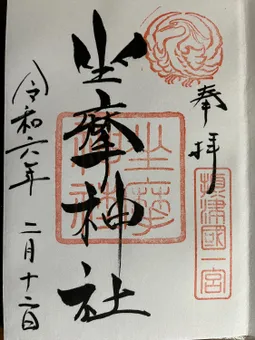 奉拝
摂津國一宮
坐摩神社
坐摩神社
令和六年
二月十二日